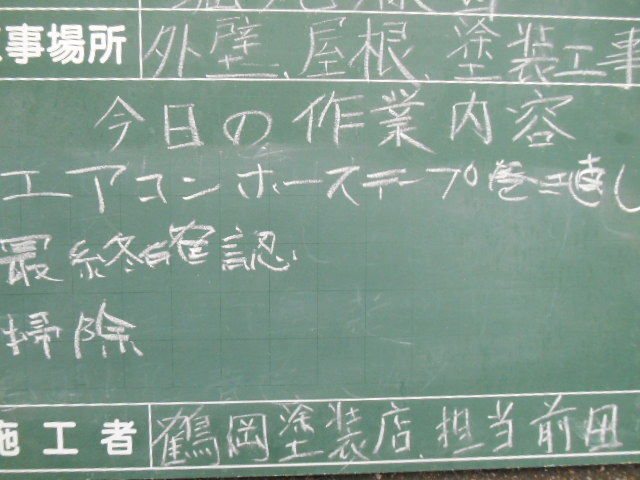 事場所 外壁、屋根、塗装工事
今日の作業内容
エアコンホーステープ巻き直し
最終確認
掃除
施工者 鶴岡塗装店、担当前田